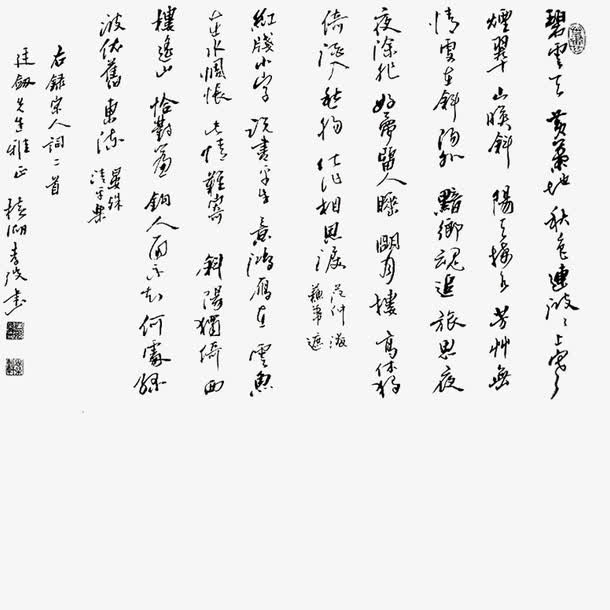 碧雲天黃葉地秋色連波〻上寒
煙翠山映斜陽天接水芳艸無
情更在斜陽外黯鄉魂追旅思夜
夜除非好夢留人睡明月樓高休獨
倚酒入愁腸化作相思淚
范仲淹
蘇幕遮
紅牋小字說盡平生意鴻雁在雲魚
在水惆悵此情難寄斜陽獨倚西
樓遙山恰對簾鉤人面不知何處綠
波依舊東流
晏殊
清平樂
右錄宋人詞二首
廷劔先生雅正